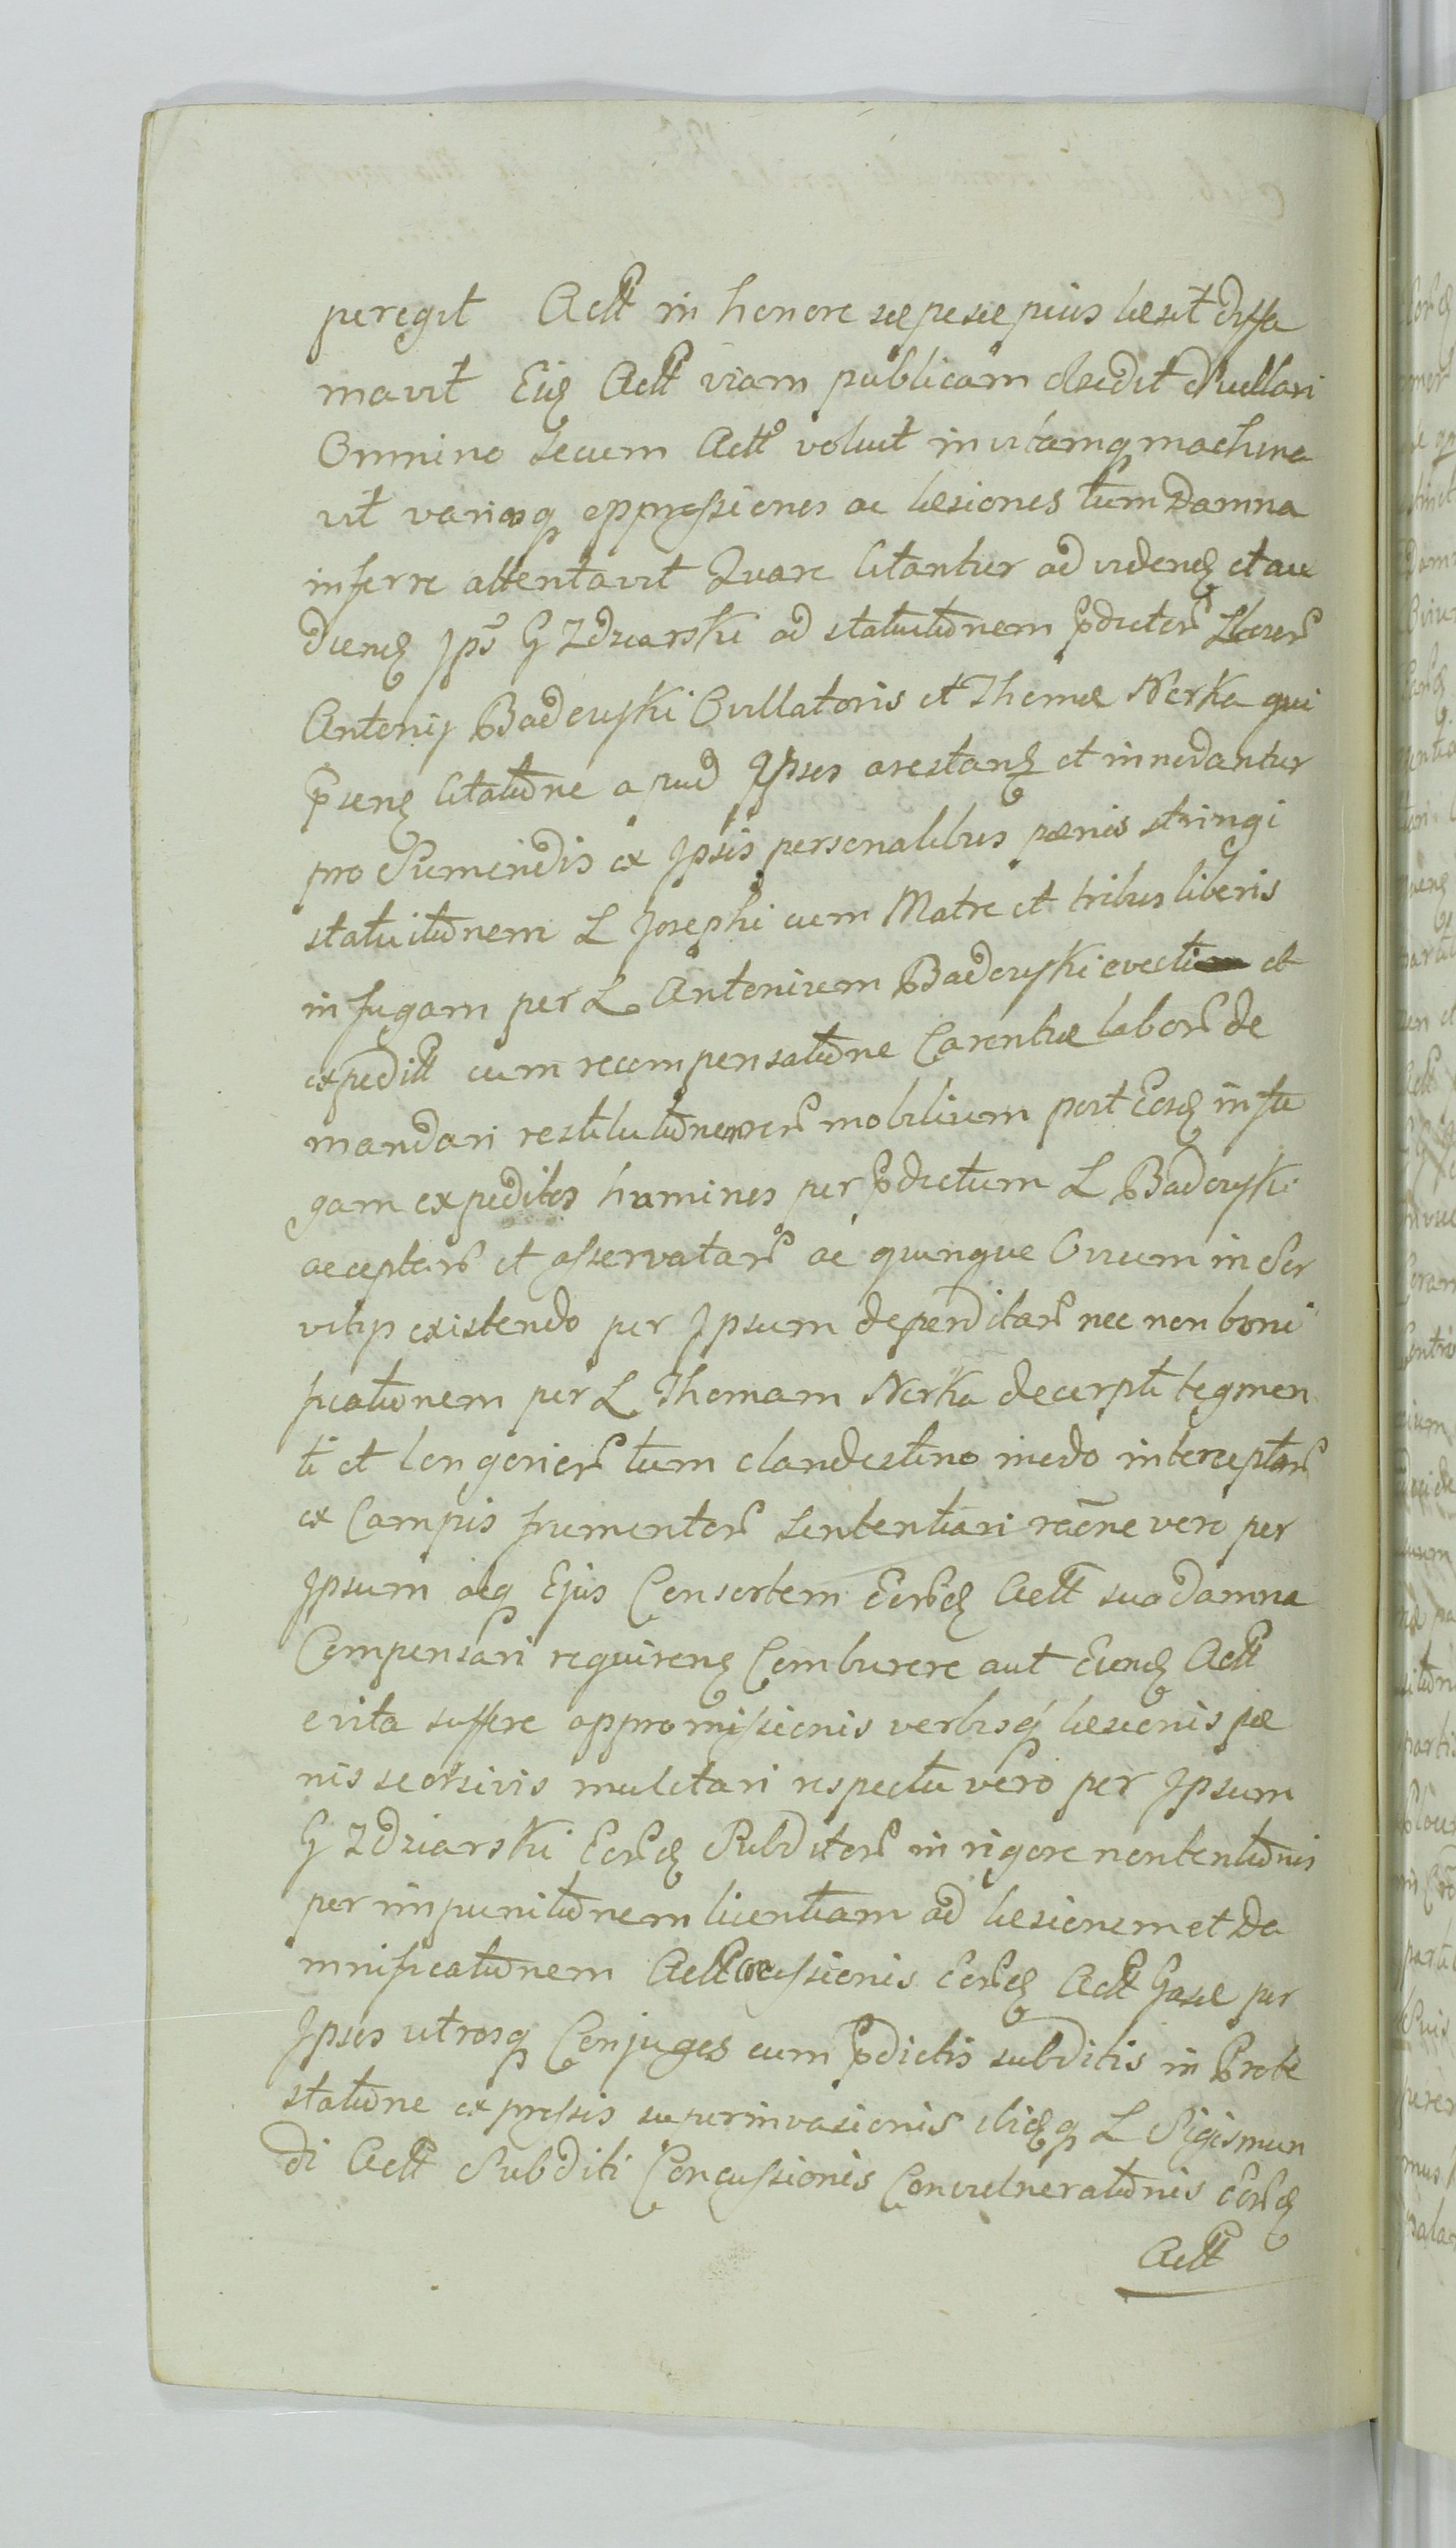 peregit Actt in honore sæpesæpius læsit diffa
mavit Eiq Actt viam publicam obsedit duellari
Omnino secum Actt voluit in vitamq machina
vit variasq oppressiones ac læsiones tum Damna
inferre attentavit Quare Citantur ad vidend et au
diend Ips G Zdziarski ad statuitionem pdictor Lbosor
Antonij Badowski Ovillatoris et Thomæ Nerka qui
psenq Citatione apud Ipsos arestanq et innodantur
pro Sumendis ex Ipsis personalibus pænis stringi
statuitionem L Josephi cum Matre et tribus liberis
in fugam per L Antonium Badowski evecti et
expeditt cum recompensatione Carentiæ labor de
mandari restitutionem rer mobilium post Eosd in fu
gam expeditos homines per pdictum L Badowski
acceptar et asservatar ac quinque Ovium in Ser
vitijs existendo per Ipsum deperditar nec non boni
ficationem per L Thomam Nerka decerpti tegmen
ti et longorior tum clandestino modo interceptor
ex Campis frumentor Sententiari raone vero per
Ipsum aeq Ejus Consortem Eord Actt sua damna
Compensari requirenq Comburere aut Eund Actt
e vita suffere appromissionis verbisq læsionis pæ
nis seorsivis mulctari respectu vero per Ipsum
G Zdziarski Eord Subditor in rigore nontentionis
per impunitionem licentiam ad læsionem et Da
mnificationem Actt occussionis Eord Actt Gasæ per
Ipsos utrosq Conjuges cum pdictis subditis in Prote
statione expressis superinvasionis ibidq L Sigismun
di Actt Subditi Concussionis Convulnerationis Eord
Actt